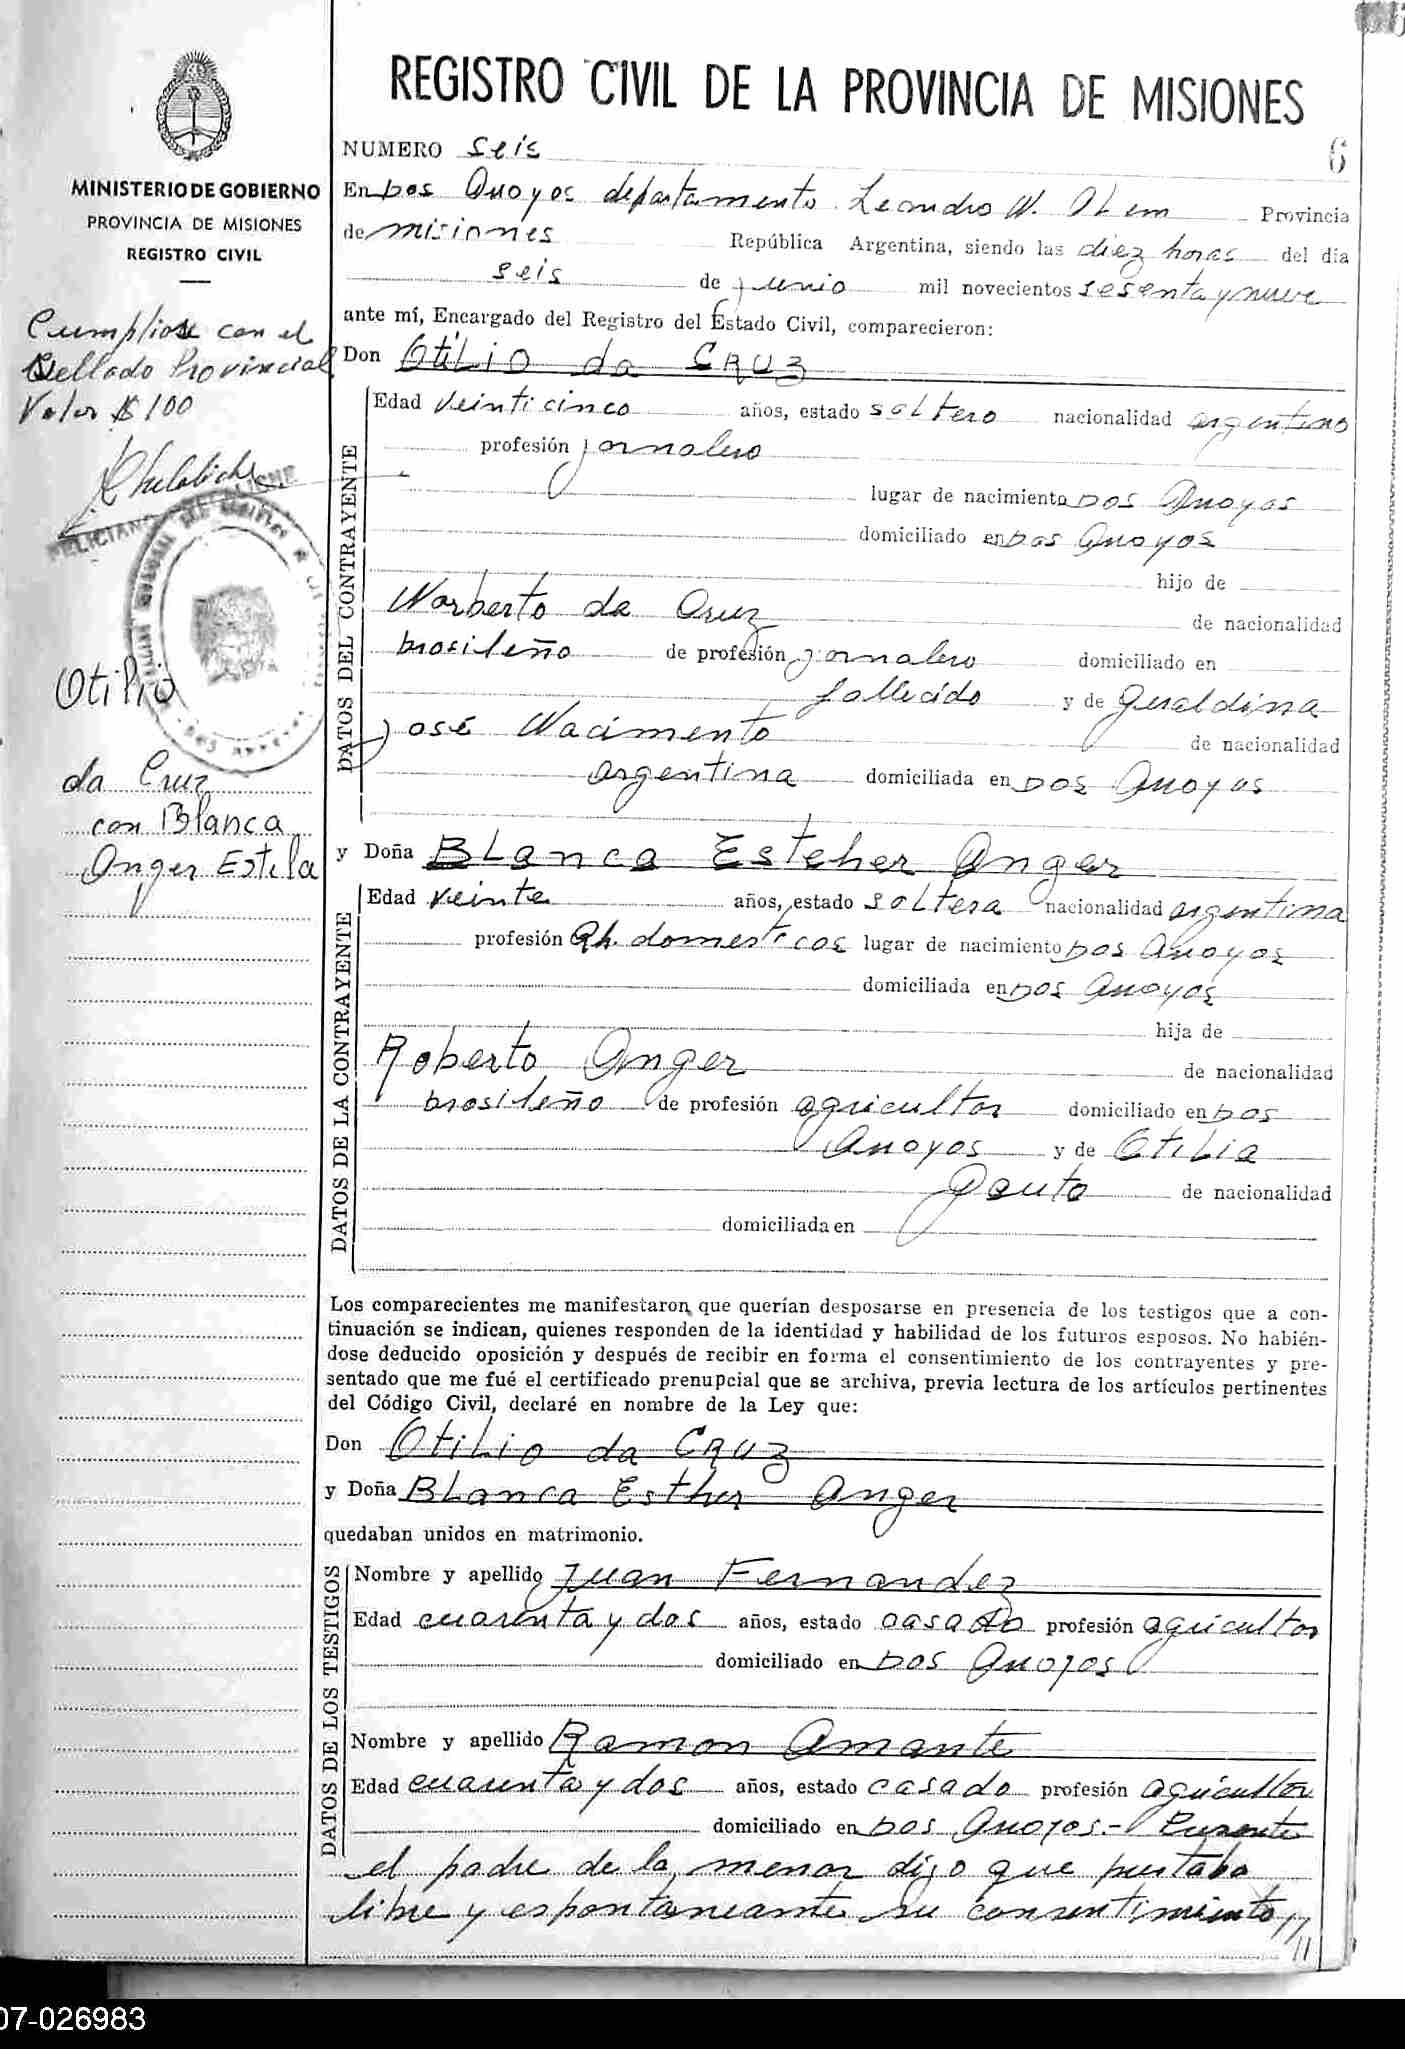 REGISTRO CIVIL DE LA PROVINCIA DE MISIONES
MINISTERIO DE GOBIERNO
PROVINCIA DE MISIONES
REGISTRO CIVIL
Cumpliose con el
Sellado Provincial
Valor $ 100
Otilio
da Cruz
con Blanca
Anger Estela
NUMERO seis 6
En Dos Arroyos departamento Leandro N. Alem Provincia
de misiones República Argentina, siendo las diez horas del día
seis de junio mil novecientos sesenta y nueve
ante mí, Encargado del Registro del Estado Civil, comparecieron:
Don Otilio da CRUZ
DATOS DEL CONTRAYENTE
Edad veinticinco años, estado soltero nacionalidad argentino
profesión jornalero
lugar de nacimiento Dos Arroyos
domiciliado en Dos Arroyos
hijo de
Norberto da Cruz de nacionalidad
brasileño de profesión jornalero domiciliado en
fallecido y de Geraldina
José Nacimento de nacionalidad
argentina domiciliada en Dos Arroyos
y Doña BLanca Esteher Anger
DATOS DE LA CONTRAYENTE
Edad veinte años, estado soltera nacionalidad argentina
profesión Qh. domesticos lugar de nacimiento Dos Arroyos
domiciliada en Dos Arroyos
hija de
Roberto Anger de nacionalidad
brasileño de profesión agricultor domiciliado en Dos
Arroyos y de Otilia
Gauto de nacionalidad
domiciliada en
Los comparecientes me manifestaron que querían desposarse en presencia de los testigos que a con-
tinuación se indican, quienes responden de la identidad y habilidad de los futuros esposos. No habién-
dose deducido oposición y después de recibir en forma el consentimiento de los contrayentes y pre-
sentado que me fué el certificado prenupcial que se archiva, previa lectura de los artículos pertinentes
del Código Civil, declaré en nombre de la Ley que:
Don Otilio da CRUZ
y Doña BLanca Esther Anger
quedaban unidos en matrimonio.
DATOS DE LOS TESTIGOS
Nombre y apellido Juan Fernandez
Edad cuarenta y dos años, estado casado profesión agricultor
domiciliado en Dos Arroyos
Nombre y apellido Ramon Amante
Edad cuarenta y dos años, estado casado profesión agricultor
domiciliado en Dos Arroyos.- Presente
el padre de la menor dijo que prestaba
libre y espontaneante su consentimiento
07-026983